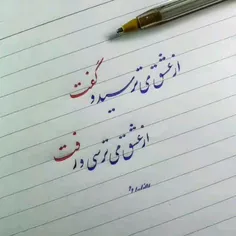 از عشق می ترسید و گفت
از عشق می ترسی و رفت